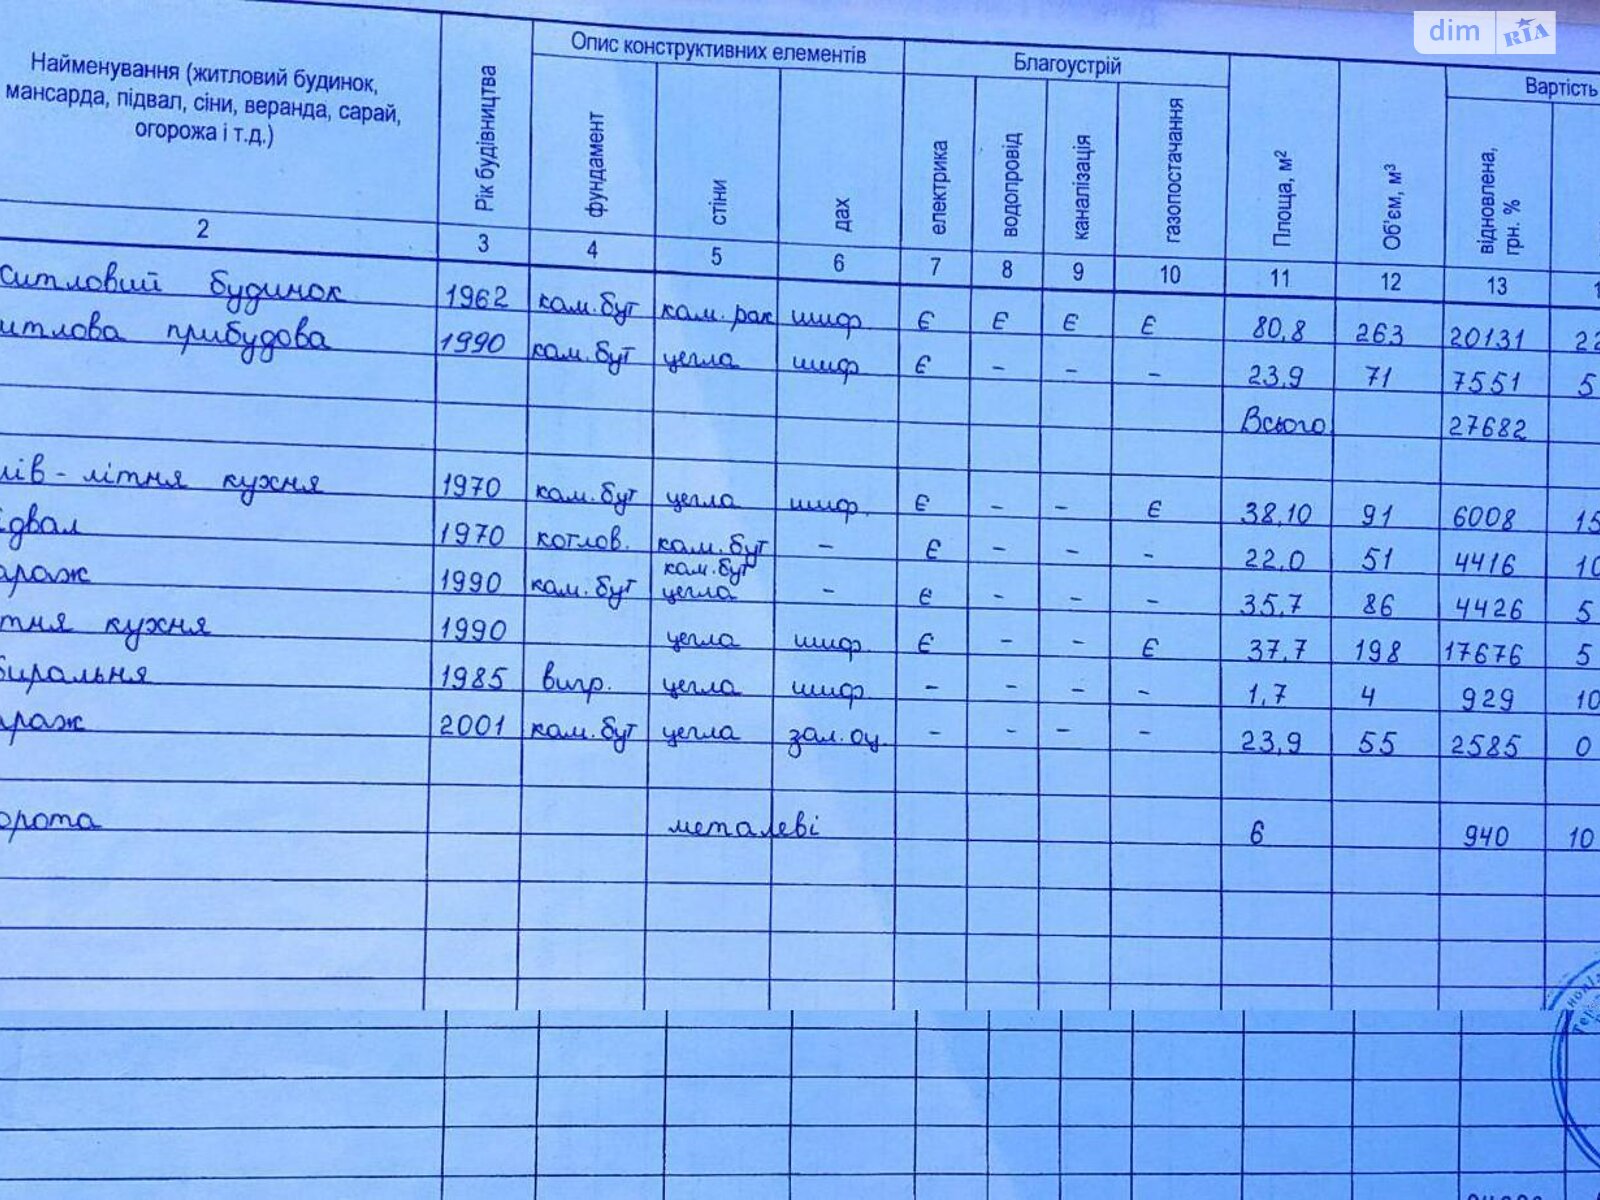 dim RIA
Найменування (житловий будинок,
мансарда, підвал, сіни, веранда, сарай,
огорожа і т.д.)
Рік будівництва
Опис конструктивних елементів
фундамент
стіни
дах
Благоустрій
електрика
водопровід
каналізація
газопостачання
Площа, м²
Об'єм, м³
Вартість
відновлена,
грн. %
2 3 4 5 6 7 8 9 10 11 12 13
итловий будинок 1962 кам.бут кам.рак шиф Є Є Є Є 80,8 263 20131 22
итлова прибудова 1990 кам.бут цегла шиф Є - - - 23,9 71 7551 5
Всього 27682
лів - літня кухня 1970 кам.бут цегла шиф. Є - - Є 38,10 91 6008 15
ідвал 1970 котлов. кам.бут - Є - - - 22,0 51 4416 10
кам.бут
араж 1990 кам.бут цегла - Є - - - 35,7 86 4426 5
тня кухня 1990 цегла шиф. Є - - Є 37,7 198 17676 5
биральня 1985 вигр. цегла шиф - - - - 1,7 4 929 10
араж 2001 кам.бут цегла зал.оц. - - - - 23,9 55 2585 0
орота металеві 6 940 10